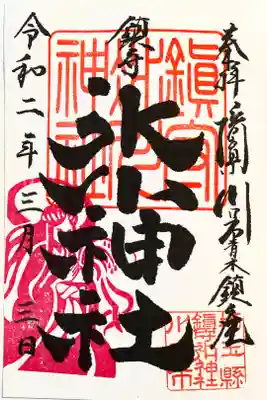 奉拝 川口市青木鎮座
鎮守
氷川神社
令和二年三月三日
鎮守
氷川
神社
埼玉縣
鎮守氷川神社
川口市